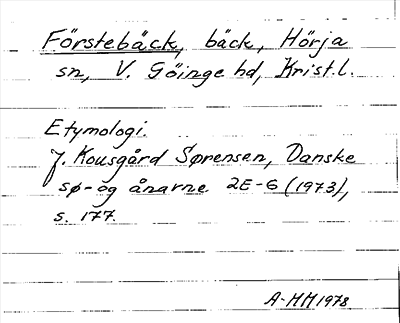 Förstebäck, bäck, Hörja
sn, V. Göinge hd, Krist.l.
Etymologi.
J. Kousgård Sørensen, Danske
sø- og ånavne 2E-G (1973),
s. 177.
A-MM 1978